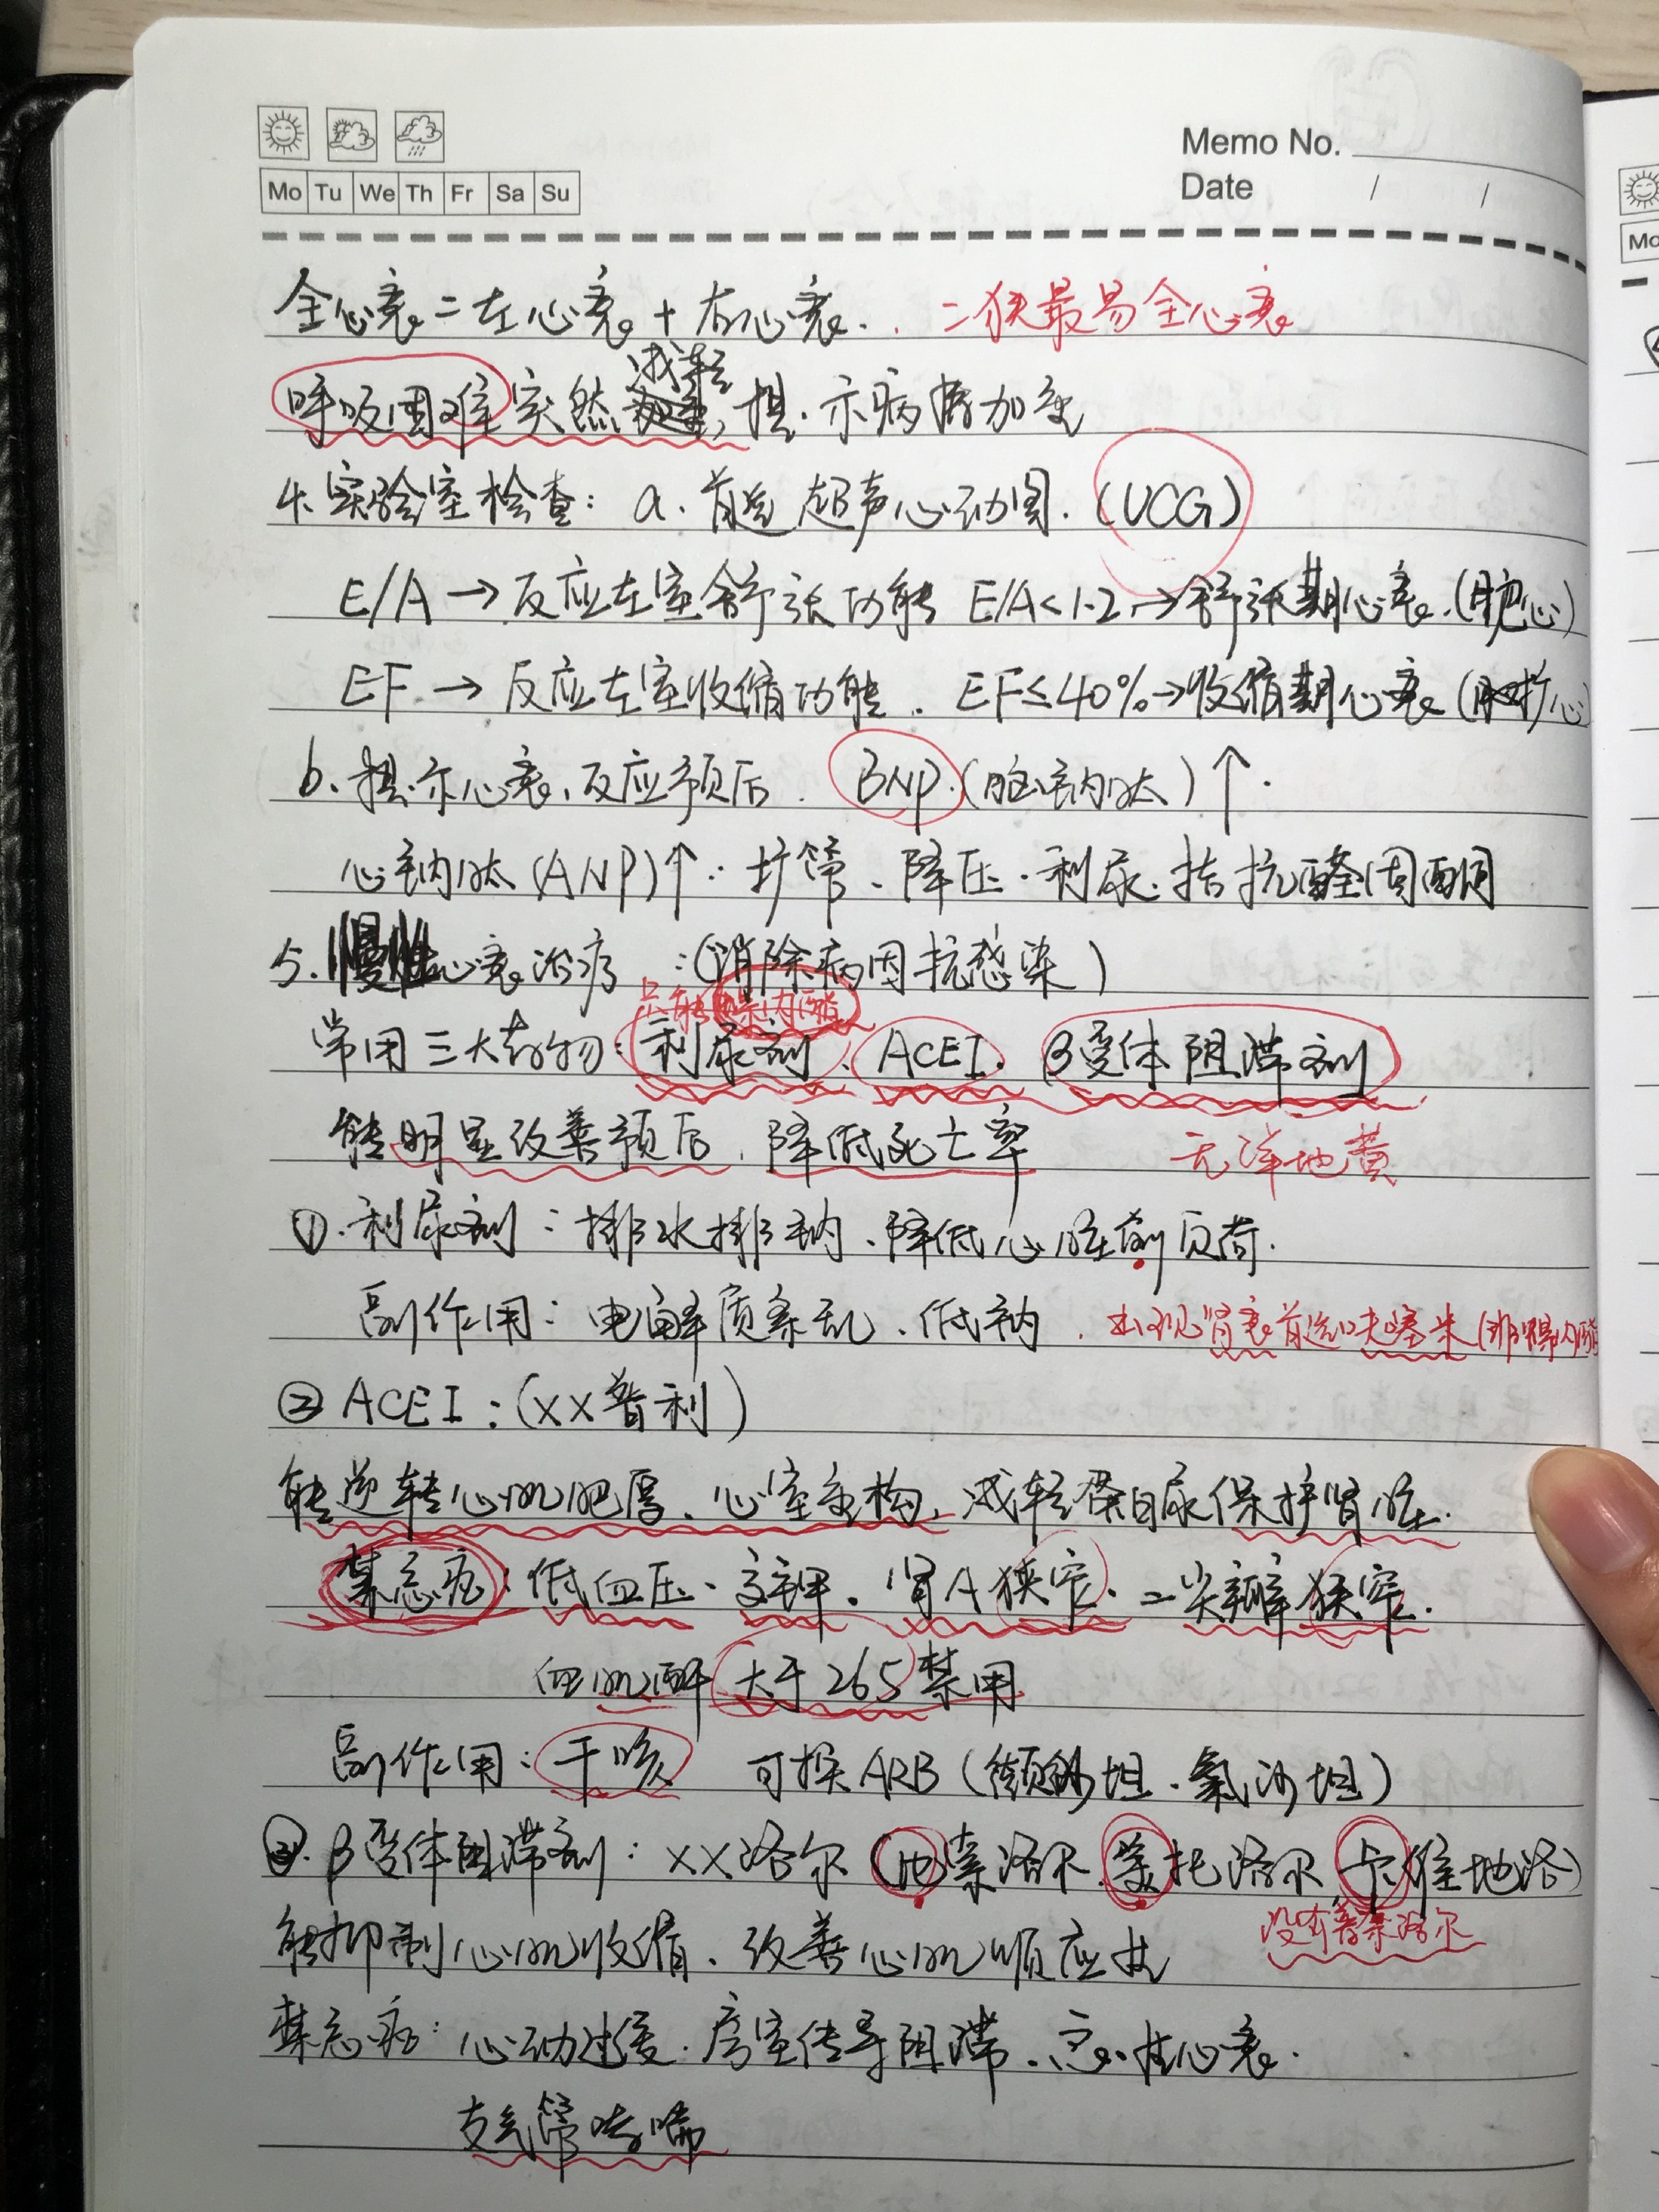 Memo No.
Mo Tu We Th Fr Sa Su
Date / /
Mo
全心衰=左心衰+右心衰. 二狭最易全心衰
减轻
呼吸困难突然, 提示病情加重
4.实验室检查: a.首选超声心动图.(UCG)
E/A→反应左室舒张功能 E/A<1.2→舒张期心衰.(肥心)
EF→反应左室收缩功能. EF≤40%→收缩期心衰(扩心
b.提示心衰、反应预后. BNP.(脑钠肽)↑.
心钠肽(ANP)↑: 扩管、降压.利尿.拮抗醛固酮
5.慢性心衰治疗:(消除病因抗感染)
只能螺内酯
常用三大药物:利尿剂、ACEI. β受体阻滞剂
能明显改善预后、降低死亡率 无洋地黄
①.利尿剂:排水排钠、降低心脏前负荷.
副作用:电解质紊乱、低钠. 出现肾衰首选呋塞米(非螺内酯
② ACEI:(XX普利)
能逆转心肌肥厚、心室重构,减轻蛋白尿保护肾脏.
禁忌症:低血压.高钾.肾A狭窄.二尖瓣狭窄.
血肌酐大于265禁用
副作用:干咳 可换ARB(缬沙坦.氯沙坦)
③.β受体阻滞剂:XX洛尔(比索洛尔.美托洛尔.卡维地洛)
没有普萘洛尔
能抑制心肌收缩、改善心肌顺应性
禁忌症:心动过缓.房室传导阻滞.急性心衰.
支气管哮喘